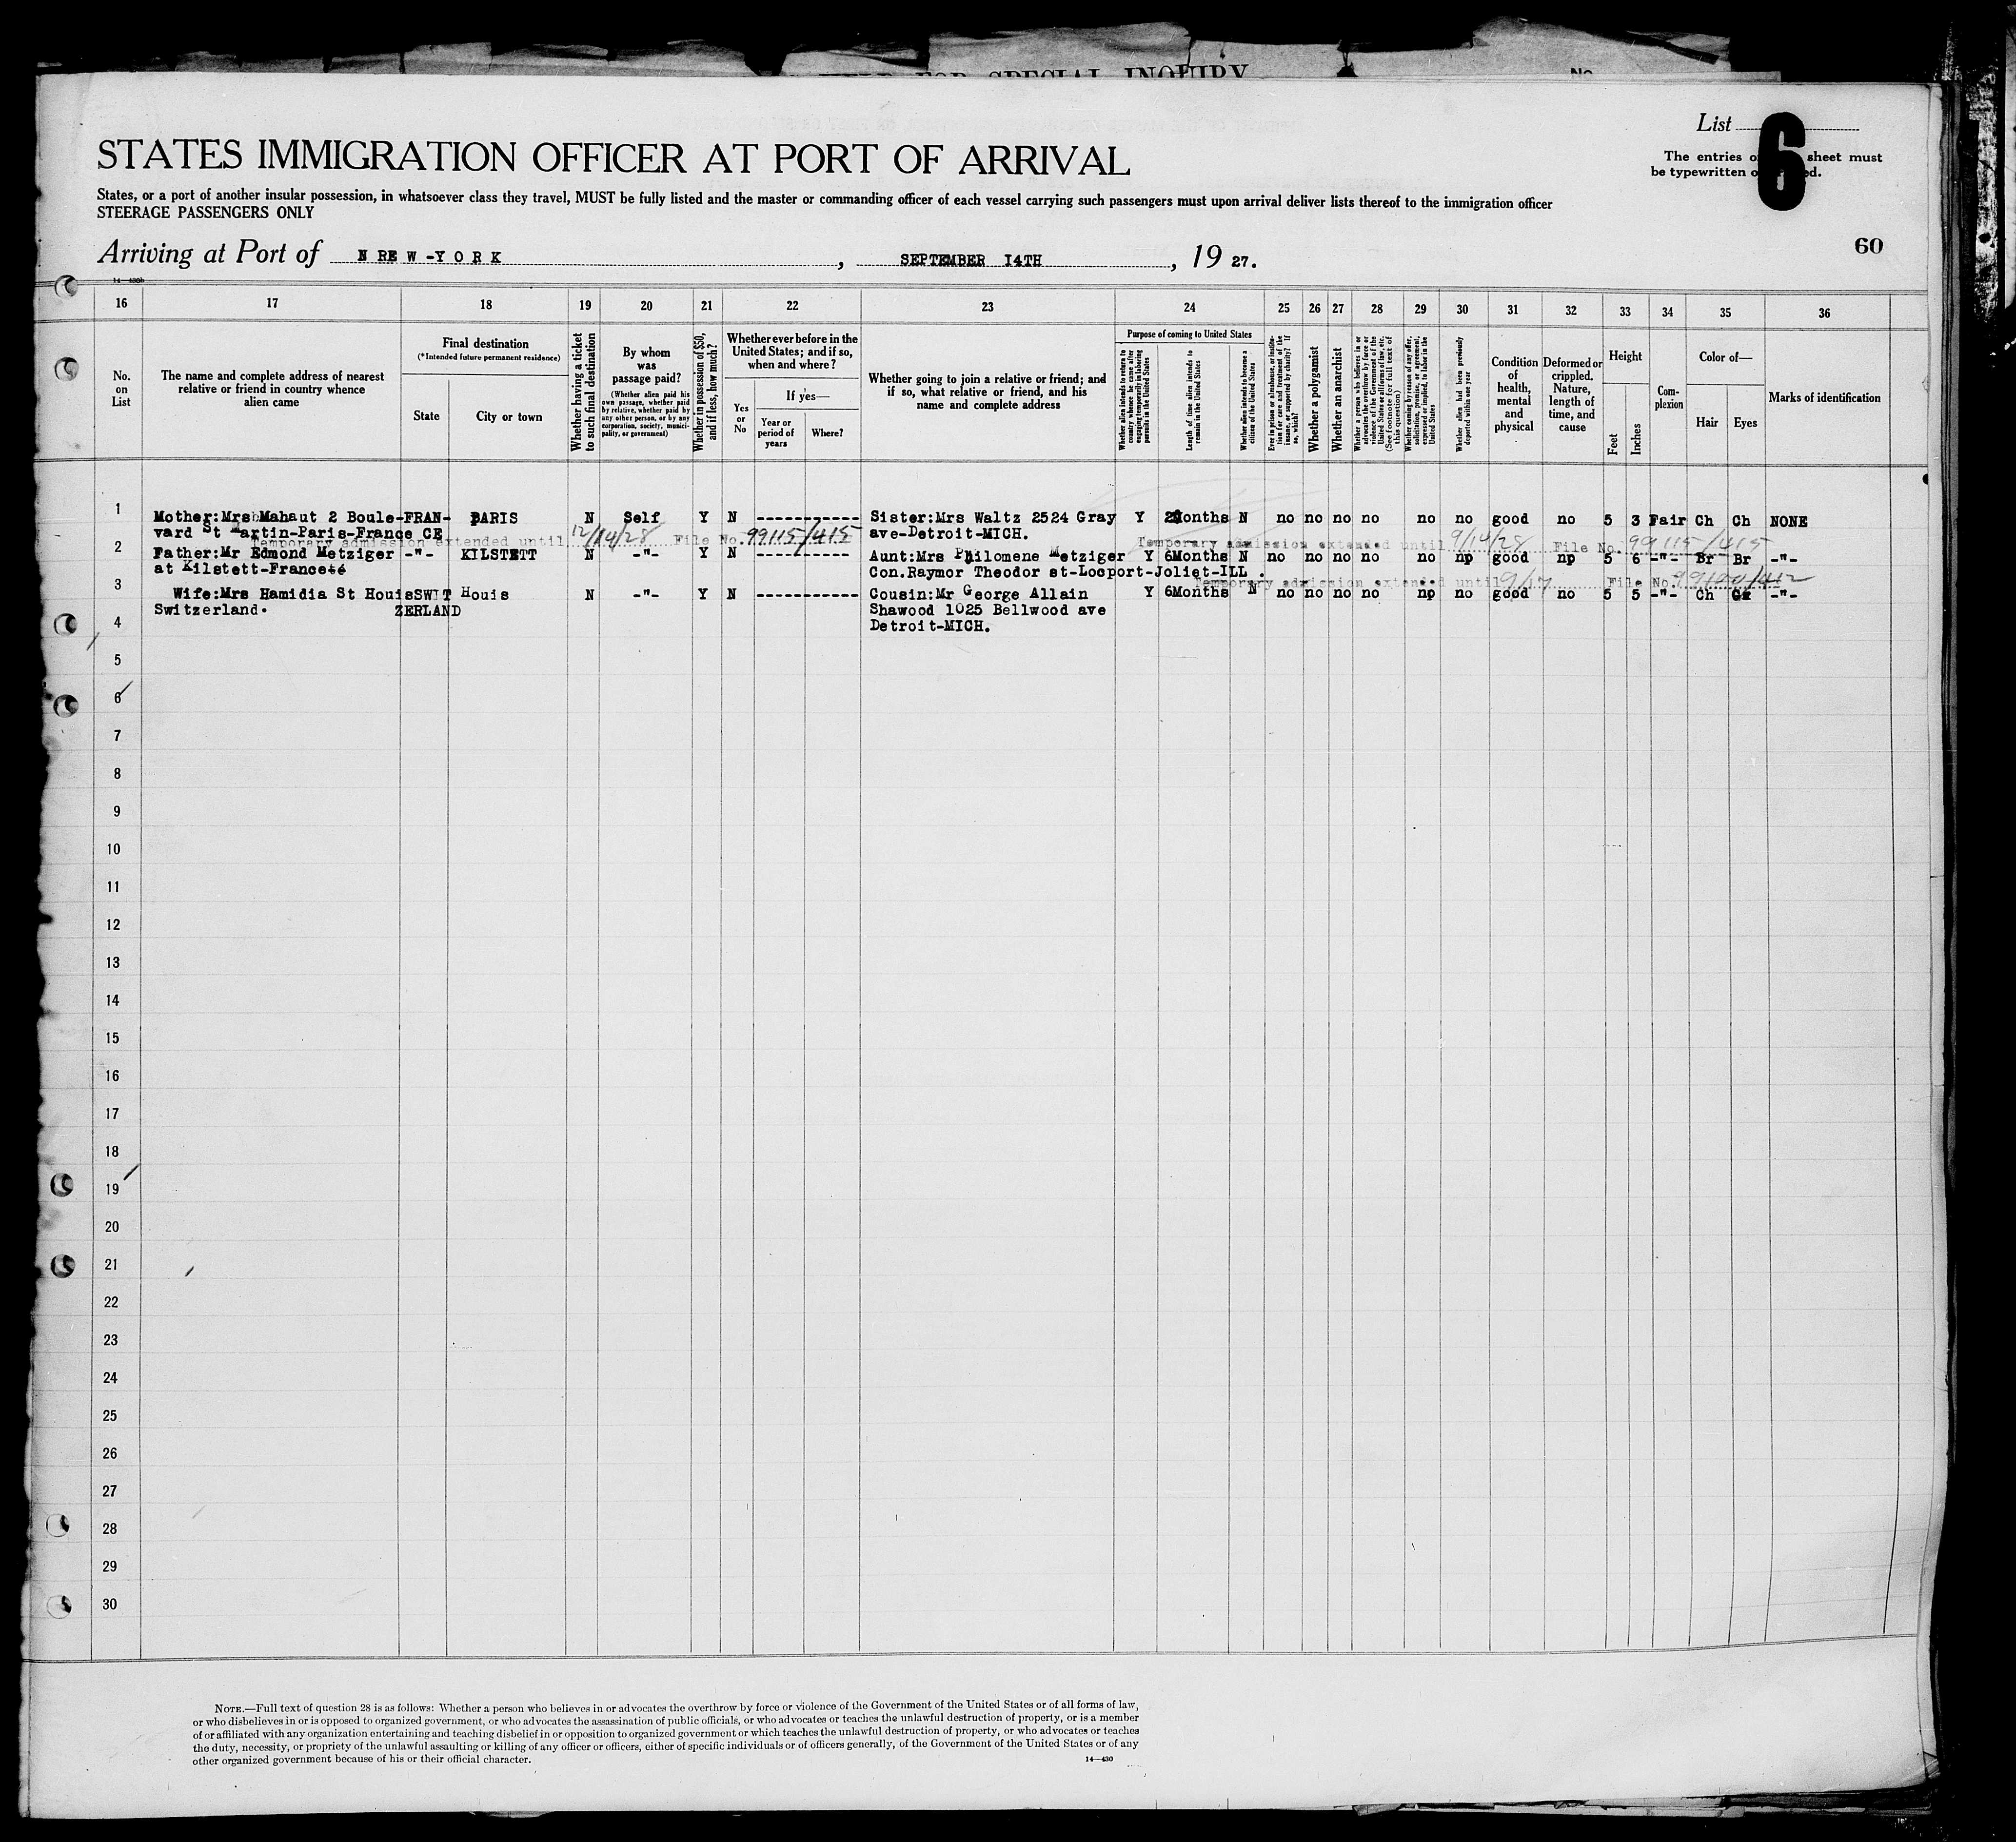 FOR SPECIAL INQUIRY
No
List
6
STATES IMMIGRATION OFFICER AT PORT OF ARRIVAL
The entries o sheet must
be typewritten o ed.
States, or a port of another insular possession, in whatsoever class they travel, MUST be fully listed and the master or commanding officer of each vessel carrying such passengers must upon arrival deliver lists thereof to the immigration officer
STEERAGE PASSENGERS ONLY
60
Arriving at Port of N RE W -Y O R K , SEPTEMBER I4TH , 19 27.
14—430b
16 17 18 19 20 21 22 23 24 25 26 27 28 29 30 31 32 33 34 35 36
No. on List
The name and complete address of nearest relative or friend in country whence alien came
Final destination
(*Intended future permanent residence)
State
City or town
Whether having a ticket to such final destination
By whom was passage paid?
(Whether alien paid his own passage, whether paid by relative, whether paid by any other person, or by any corporation, society, municipality, or government)
Whether in possession of $50, and if less, how much?
Whether ever before in the United States; and if so, when and where?
Yes or No
If yes—
Year or period of years
Where?
Whether going to join a relative or friend; and if so, what relative or friend, and his name and complete address
Purpose of coming to United States
Whether alien intends to return to country whence he came after engaging temporarily in laboring pursuits in the United States
Length of time alien intends to remain in the United States
Whether alien intends to become a citizen of the United States
Ever in prison or almshouse, or institution for care and treatment of the insane, or supported by charity? If so, which?
Whether a polygamist
Whether an anarchist
Whether a person who believes in or advocates the overthrow by force or violence of the Government of the United States or all forms of law, etc. (See footnote for full text of this question)
Whether coming by reason of any offer, solicitation, promise, or agreement, expressed or implied, to labor in the United States
Whether alien had been previously deported within one year
Condition of health, mental and physical
Deformed or crippled. Nature, length of time, and cause
Height
Feet
Inches
Complexion
Color of—
Hair
Eyes
Marks of identification
1 Mother:Mrs Mahaut 2 Boule-FRAN- PARIS N Self Y N ----------- Sister:Mrs Waltz 2524 Gray Y Months N no no no no no no good no 5 3 Fair Ch Ch NONE
vard St Martin-Paris-France CE ave-Detroit-MICH.
Temporary admission extended until 12/14/28 File No. 99115/415 Temporary admission extended until 9/14/28 File No. 99115/415
2 Father:Mr Edmond Metziger -"- KILSTETT N -"- Y N ----------- Aunt:Mrs Philomene Metziger Y 6Months N no no no no no np good np 5 6 -"- Br Br -"-
at Kilstett-France Con.Raymor Theodor st-Locport-Joliet-ILL .
Temporary admission extended until 9/17 File No.
3 Wife:Mrs Hamidia St Houis SWIT Houis N -"- Y N ----------- Cousin:Mr George Allain Y 6Months N no no no no np no good no 5 5 -"- Ch -"-
Switzerland. ZERLAND Shawood 1025 Bellwood ave
4 Detroit-MICH.
5
6
7
8
9
10
11
12
13
14
15
16
17
18
19
20
21
22
23
24
25
26
27
28
29
30
NOTE.—Full text of question 28 is as follows: Whether a person who believes in or advocates the overthrow by force or violence of the Government of the United States or of all forms of law,
or who disbelieves in or is opposed to organized government, or who advocates the assassination of public officials, or who advocates or teaches the unlawful destruction of property, or is a member
of or affiliated with any organization entertaining and teaching disbelief in or opposition to organized government or which teaches the unlawful destruction of property, or who advocates or teaches
the duty, necessity, or propriety of the unlawful assaulting or killing of any officer or officers, either of specific individuals or of officers generally, of the Government of the United States or of any
other organized government because of his or their official character.
14—430